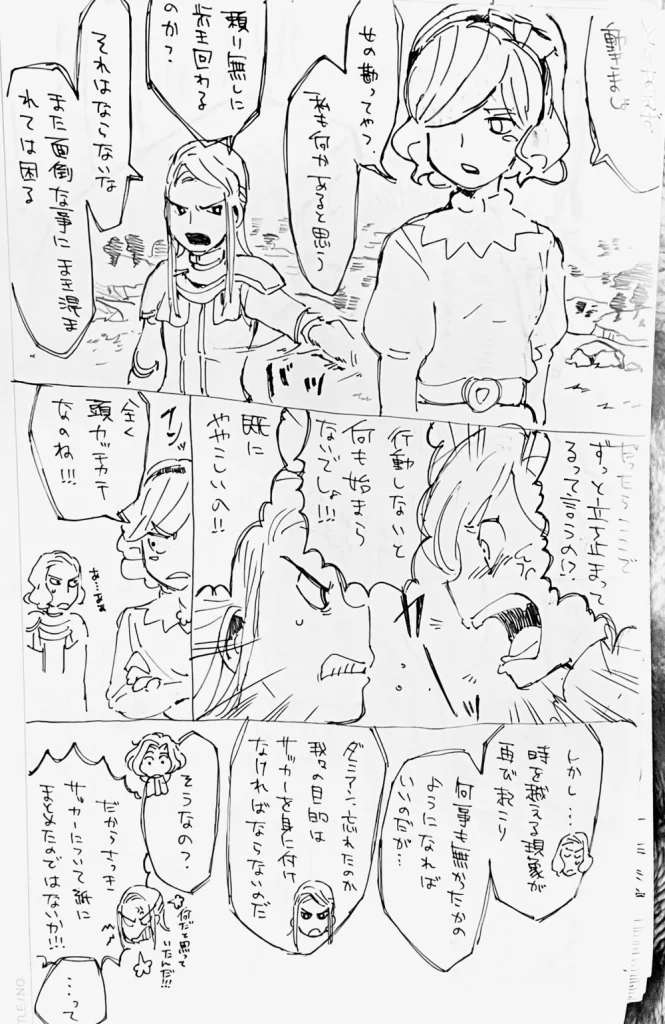 とりあえず
動きましょ
女の勘ってやつ?
私も何かあると思う
頼り無しに
歩き回わる
のか?
それはならないな
また面倒な事に
まき混ま
れては困る
だったらここで
ずっと立ち止まって
るって言うの!?
行動しないと
何も始まら
ないでしょ!!!
既に
ややこしいの!!
全く
頭カッチカチ
なのね!!!
しかし…
時を越える現象が
再び起こり
何事も無かったかの
ようになれば
いいのだが…
ダミアン、忘れたのか
我々の目的は
サッカーを身に付け
なければならないのだ
そうなの?
だからさっき
サッカーについて紙に
まとめたのではないか!!!
何だと思って
いたんだ!!!
…って